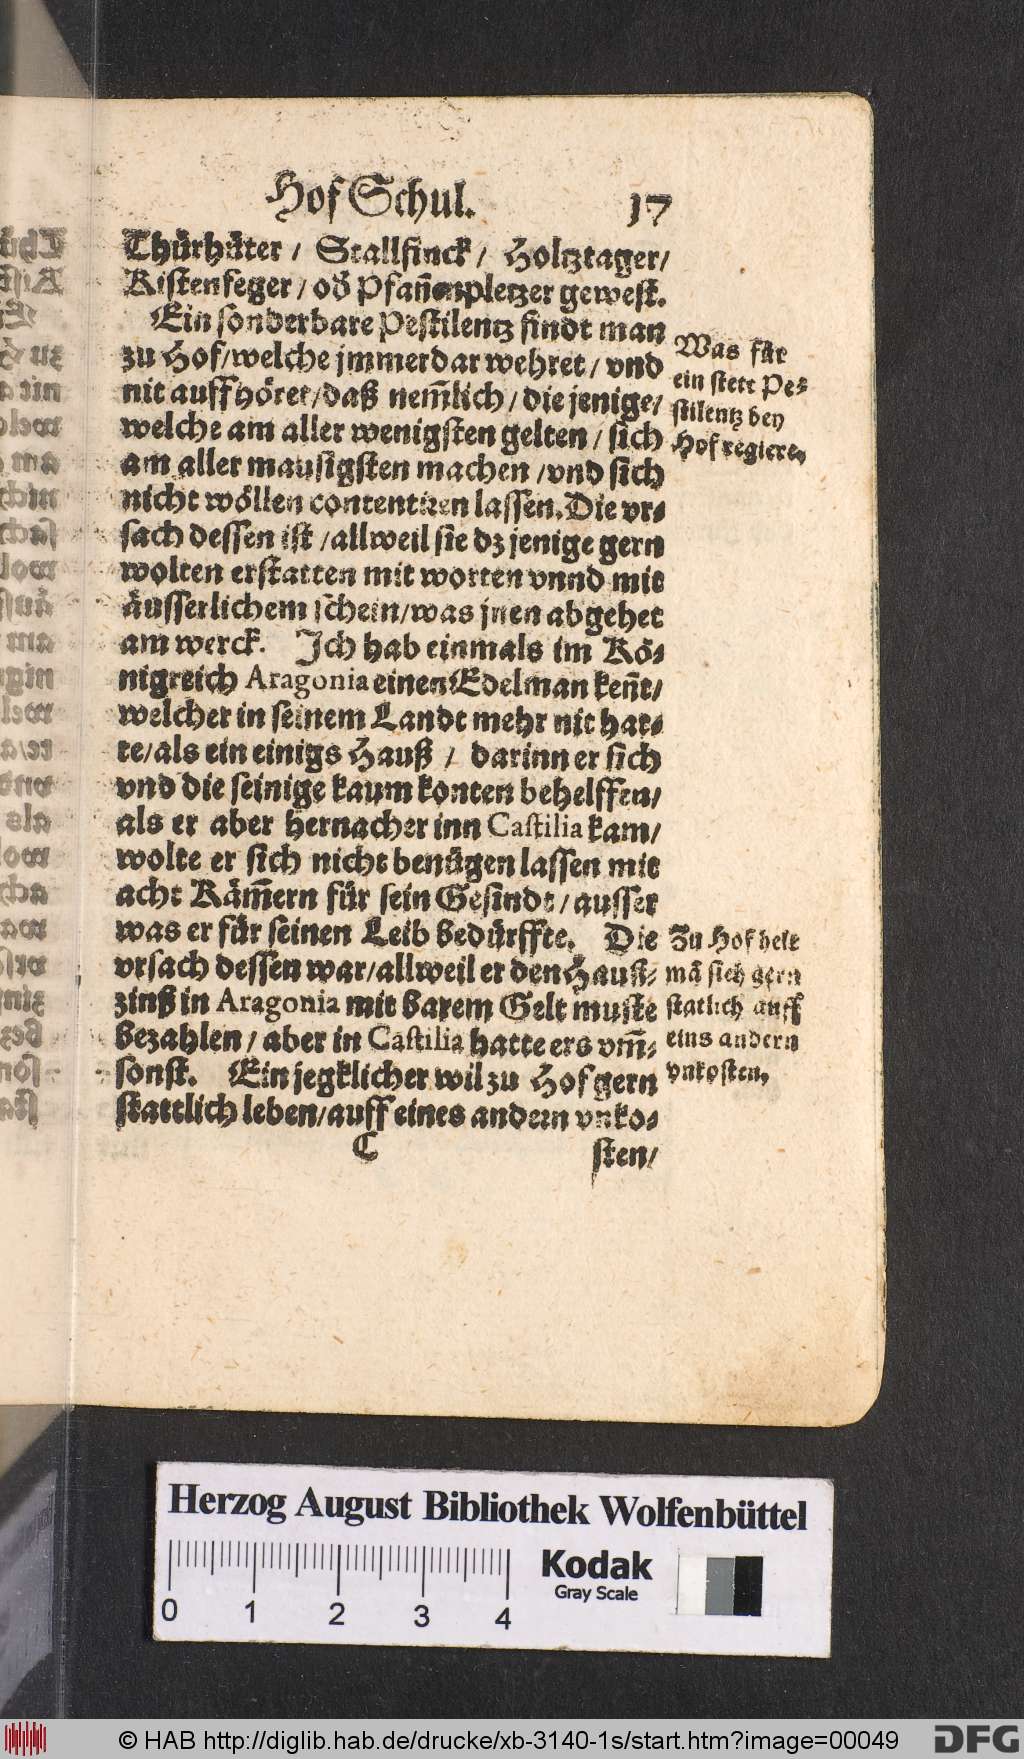 Hof Schul. 17
Thürhüter / Stallfinck / Holtztager /
Kistenfeger / oď Pfan̄enpletzer gewest.
Ein sonderbare Pestilentz findt man
zu Hof/welche jmmerdar wehret / vnd
nit auffhöret/daß nem̄lich / die jenige/
welche am aller wenigsten gelten / sich
am aller mausigsten machen /vnd sich
nicht wöllen contentiren lassen. Die vr-
sach dessen ist /allweil sie dz jenige gern
wolten erstatten mit worten vnnd mit
äusserlichem schein/was jnen abgehet
am werck. Ich hab einmals im Kö-
nigreich Aragonia einen Edelman ken̄t/
welcher in seinem Landt mehr nit hat-
te/als ein einigs Hauß / darinn er sich
vnd die seinige kaum konten behelffen/
als er aber hernacher inn Castilia kam/
wolte er sich nicht benügen lassen mit
acht Käm̄ern für sein Gesindt / ausser
was er für seinen Leib bedürffte. Die
vrsach dessen war/allweil er den Hauß-
zinß in Aragonia mit barem Gelt muste
bezahlen / aber in Castilia hatte ers vm̄-
sonst. Ein jegklicher wil zu Hof gern
stattlich leben/auff eines andern vnko-
C sten/
Was für
ein stete Pe-
stilentz bey
Hof regiere.
Zu Hof helt
mā sich gern
statlich auff
eins andern
vnkosten.
Herzog August Bibliothek Wolfenbüttel
0 1 2 3 4
Kodak
Gray Scale
© HAB http://diglib.hab.de/drucke/xb-3140-1s/start.htm?image=00049
DFG